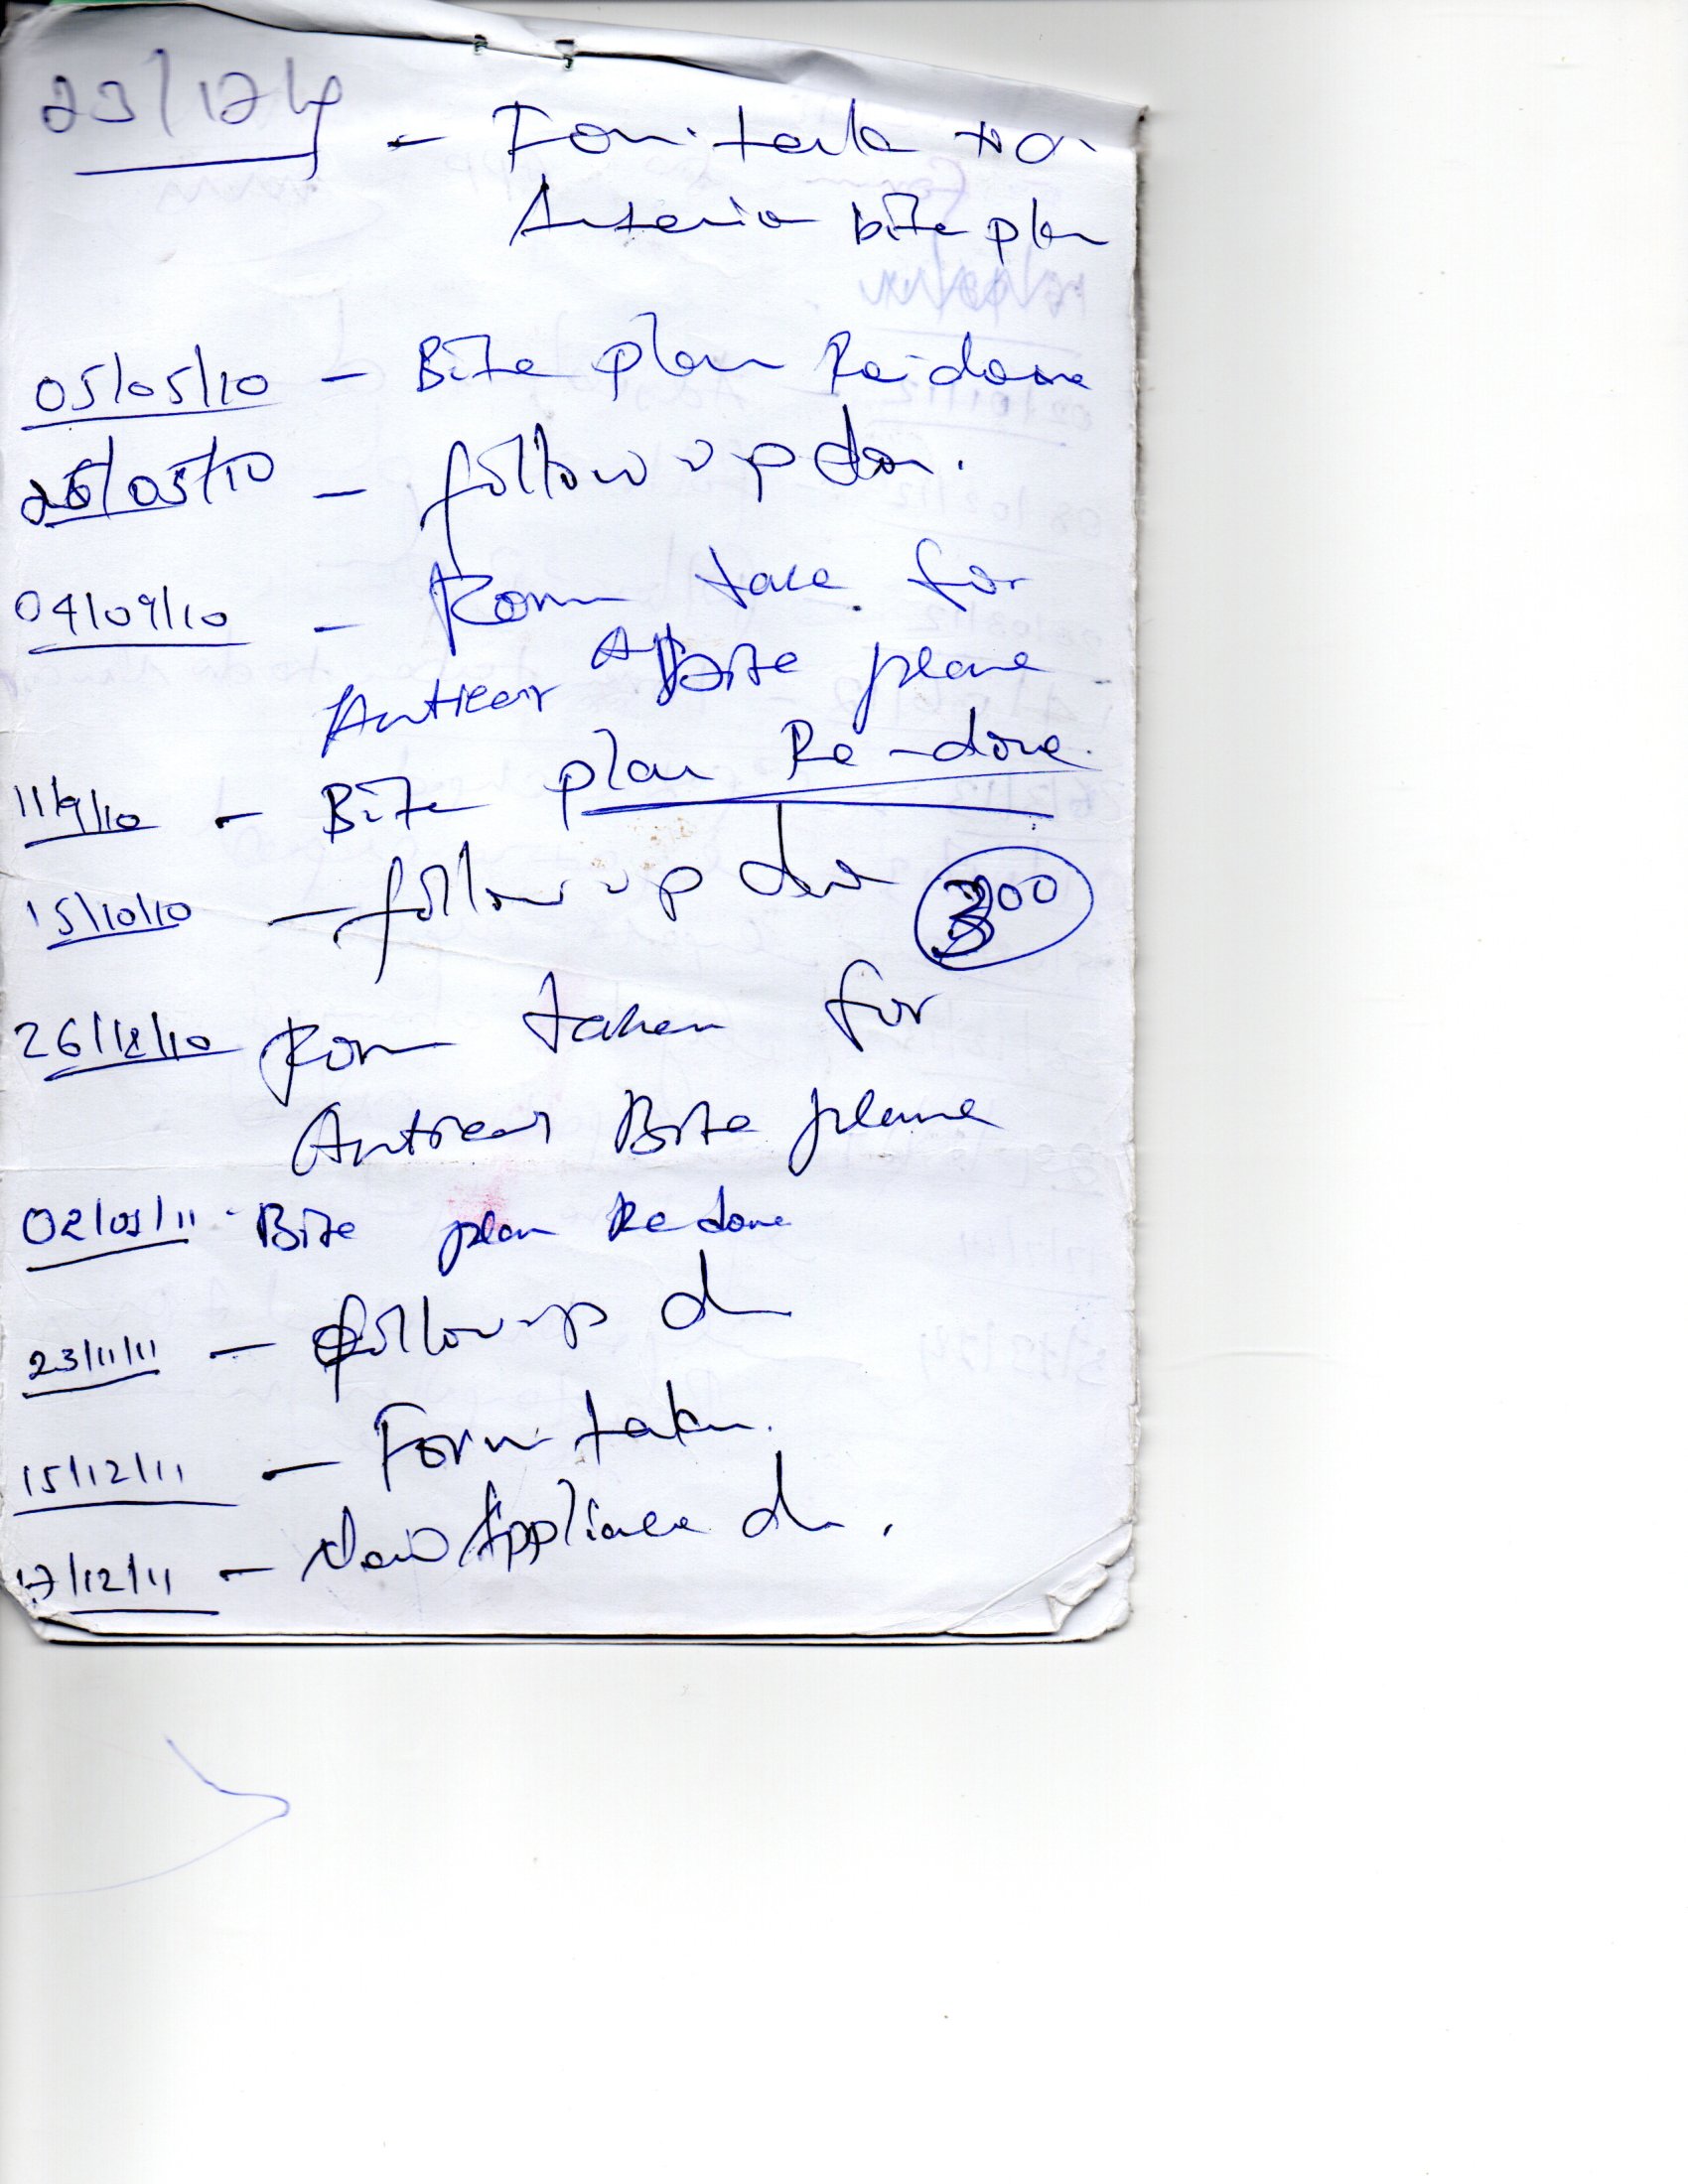 Form taken for
Anterio bite plan
05/05/10 - Bite plan Re-done
26/05/10 - follow up don.
04/09/10 - Form take for
Antrear Bite plane
11/9/10 - Bite plan Re-done.
15/10/10 - follow up done 300
26/12/10 Form taken for
Antrear Bite plane
02/01/11 - Bite plan Re done
23/11/11 - follow up d
15/12/11 - Form taken.
17/12/11 - New Appliance d.